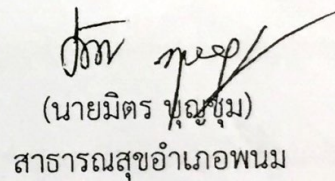 (นายมิตร บุญชุม)
สาธารณสุขอำเภอพนม